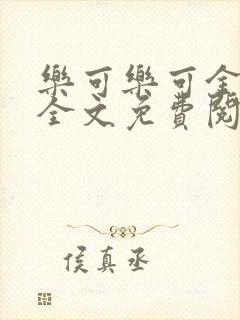 樂可樂可全
全文免費閱
侯真丞